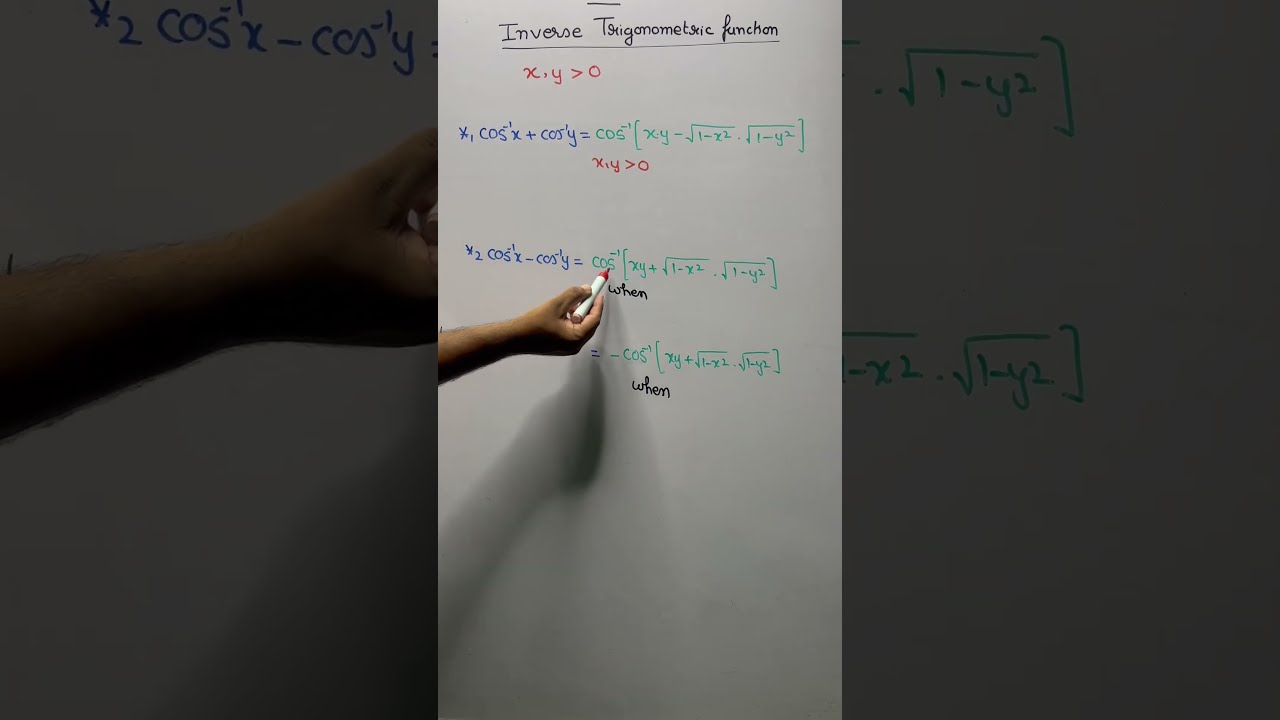 Inverse Trigonometric function
x, y > 0
*1 cos⁻¹x + cos⁻¹y = cos⁻¹[x·y − √1−x² · √1−y²]
x, y > 0
*2 cos⁻¹x − cos⁻¹y = cos⁻¹[xy + √1−x² · √1−y²]
when
= − cos⁻¹[xy + √1−x² · √1−y²]
when
*2 cos⁻¹x − cos⁻¹y =
· √1−y²]
1−x² · √1−y²]